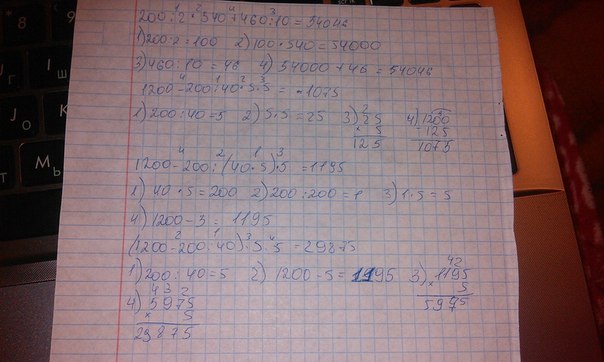 200:2·540+460:10=54046
1) 200:2=100 2) 100·540=54000
3) 460:10=46 4) 54000+46=54046
1200-200:40·5·5=1075
1) 200:40=5 2) 5·5=25 3) 25 4) 1200
× 5 -125
125 1075
1200-200:(40·5)·5=1195
1) 40·5=200 2) 200:200=1 3) 1·5=5
4) 1200-3=1195
(1200-200:40)·5·5=29875
1) 200:40=5 2) 1200-5=1195 3) 1195
4) 5975 × 5
× 5 5975
29875